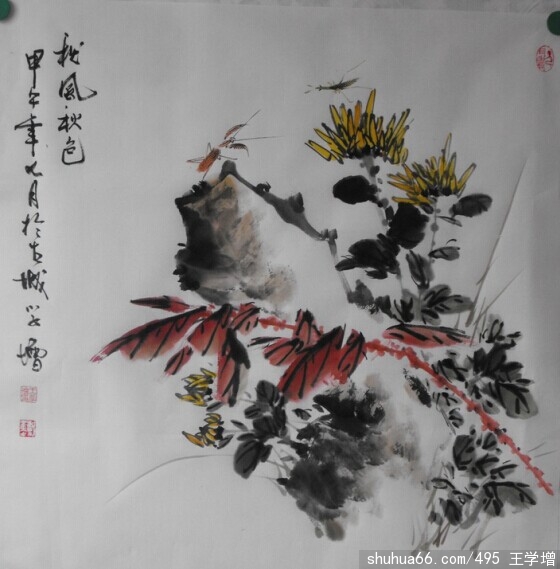 秋風秋色
甲午年九月於古城学增
shuhua66.com/495 王学增